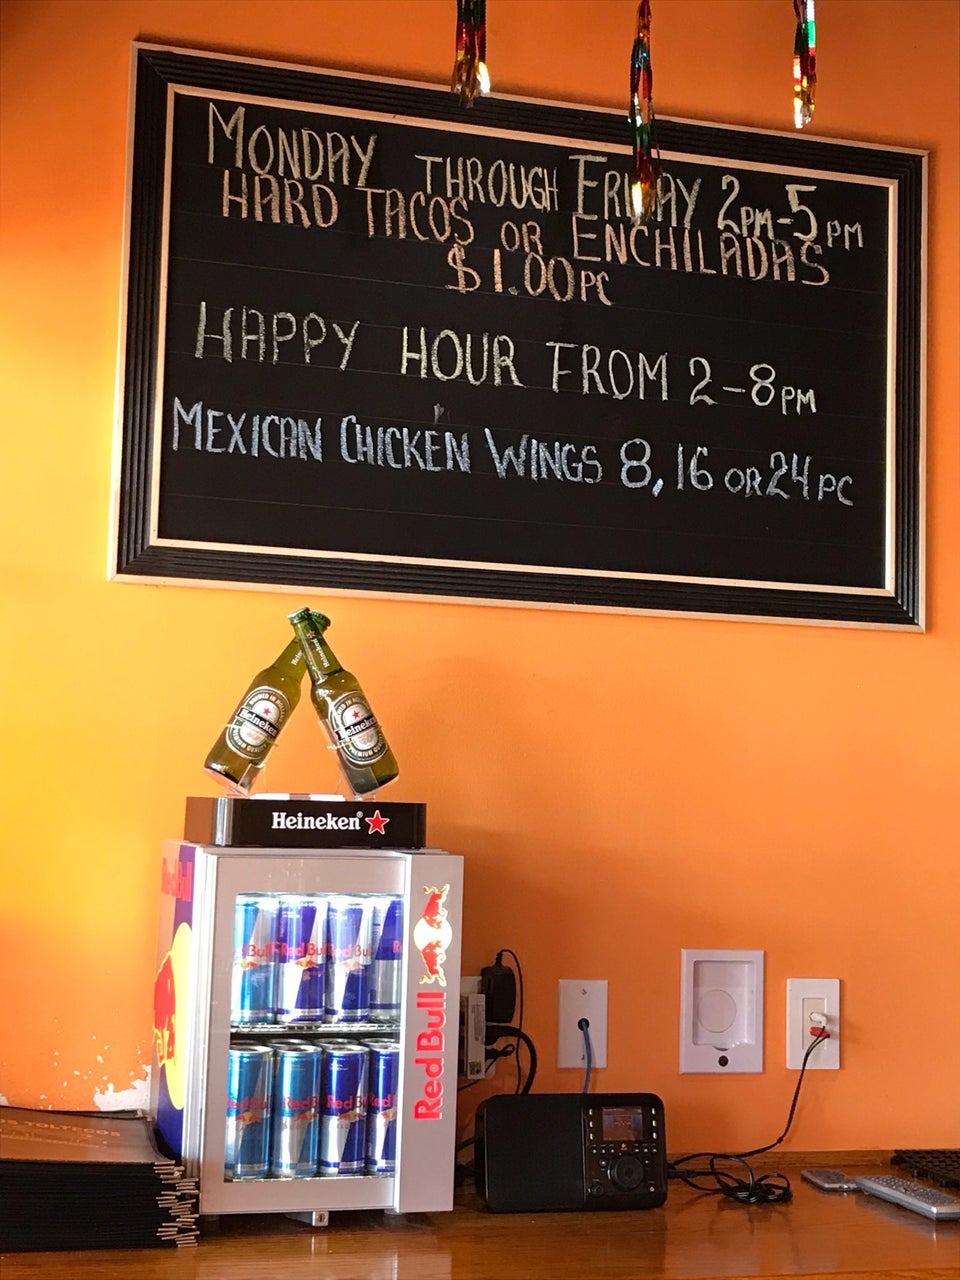 MONDAY THROUGH FRIDAY 2PM-5PM
HARD TACOS OR ENCHILADAS
$1.00PC
HAPPY HOUR FROM 2-8PM
MEXICAN CHICKEN WINGS 8, 16 OR 24 PC
Heineken
Heineken
Heineken
PREMIUM QUALITY
Heineken®
Red Bull
Red Bull
Red Bull
Red Bull
Red Bull
Red Bull
Red Bull
Red Bull
Red Bull